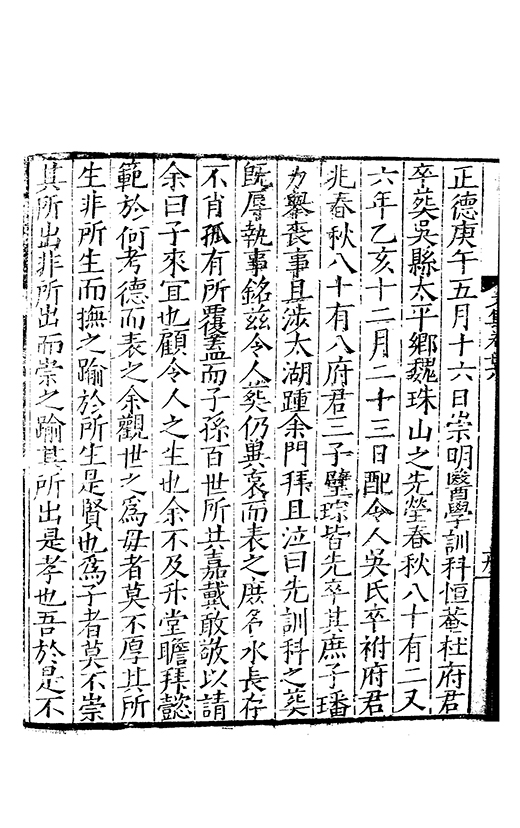 正德庚午五月十六日崇明醫學訓科恒菴杜府君
卒葬吳縣太平鄉魏珠山之先塋春秋八十有二又
六年乙亥十二月二十三日配令人吳氏卒祔府君
兆春秋八十有八府君三子璧琮皆先卒其庶子璠
力舉喪事且涉太湖踵余門拜且泣曰先訓科之葬
既辱執事銘茲令人葬仍異哀而表之庶名永長存
不肖孤有所覆蓋而子孫百世所共嘉戴敢敬以請
余曰子來宜也顧令人之生也余不及升堂瞻拜懿
範於何考德而表之余觀世之爲母者莫不厚其所
生非所生而撫之踰於所生是賢也爲子者莫不崇
其所出非所出而崇之踰其所出是孝也吾於是不